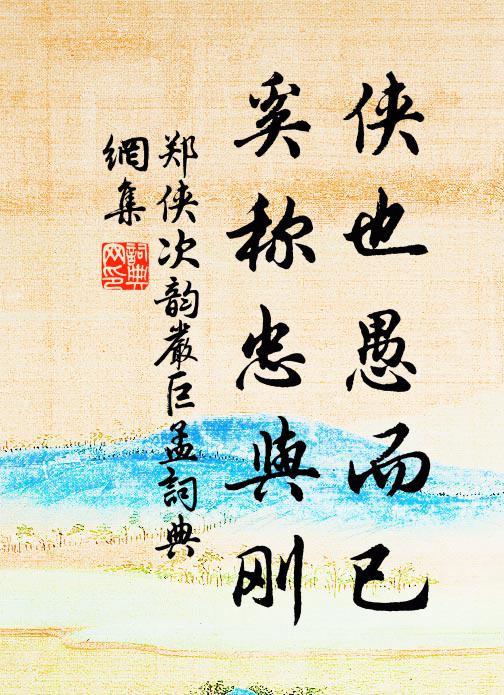 侠也愚而已
奚称忠與刚
郑侠次韵嚴巨孟詞典
網集
詞典
网印